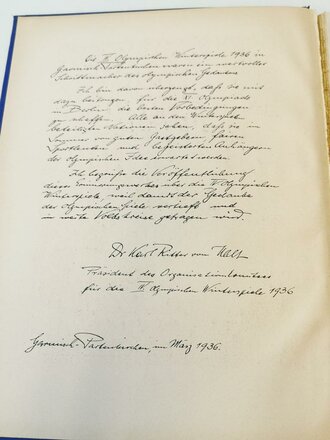 Die IV. Olympischen Winterspiele 1936 in
Garmisch-Partenkirchen waren ein wertvoller
Schrittmacher des olympischen Gedankens
Ich bin davon überzeugt, daß sie mit
dazu beitragen, für die XI. Olympiade
in Berlin die besten Vorbedingungen
zu schaffen. Alle an den Winterspielen
beteiligten Nationen sahen, daß sie in
von guten Gastgebern, fairen
Sportsleuten und begeisterten Anhängern
der olympischen Idee erwartet werden.
Ich begrüße die Veröffentlichung
dieses über die IV. Olympischen
Winterspiele, weil damit der Gedanke
der Olympischen Spiele vertieft und
in weite Volkskreise getragen wird.
Dr Karl Ritter von Halt
Präsident des Organisationskomitees
für die IV. Olympischen Winterspiele 1936
Garmisch-Partenkirchen, im März 1936.